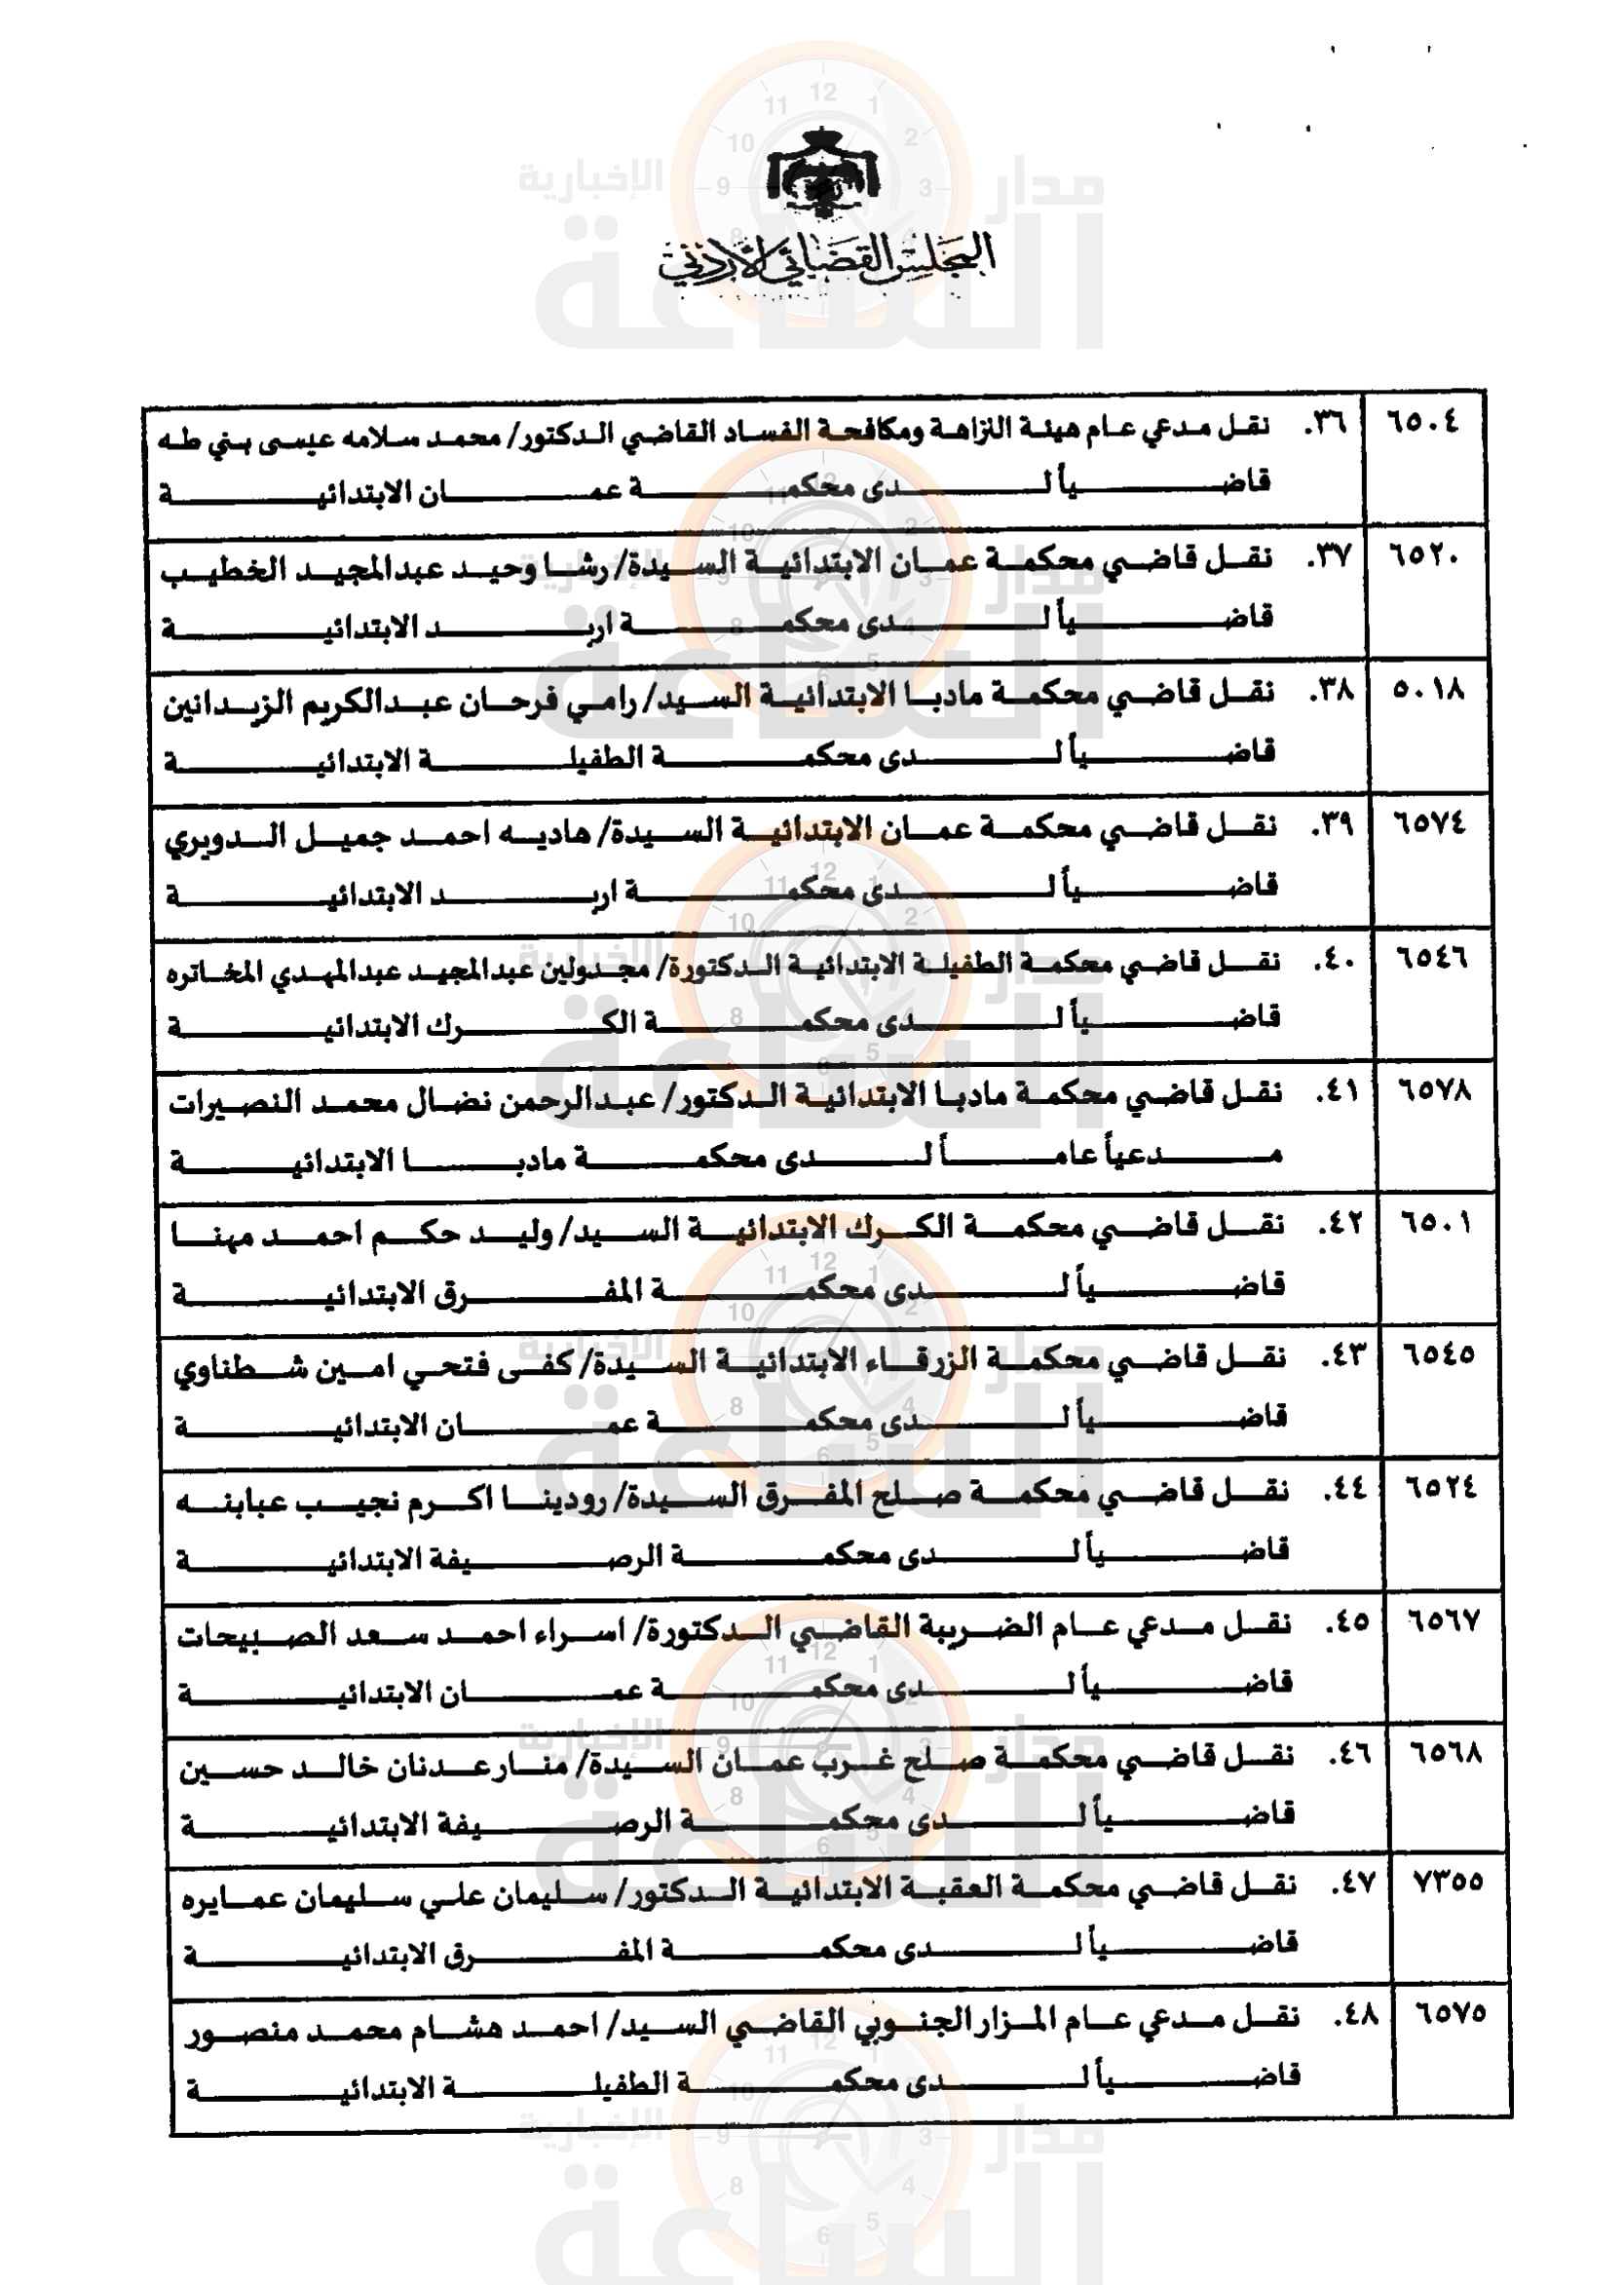 المجلس القضائي الأردني
٦٥٠٤ ٣٦. نقل مدعي عام هيئة النزاهة ومكافحة الفساد القاضي الدكتور/ محمد سلامه عيسى بني طه
قاضياً لدى محكمة عمان الابتدائية
٦٥٢٠ ٣٧. نقل قاضي محكمة عمان الابتدائية السيدة/ رشا وحيد عبدالمجيد الخطيب
قاضياً لدى محكمة اربد الابتدائية
٥٠١٨ ٣٨. نقل قاضي محكمة مادبا الابتدائية السيد/ رامي فرحان عبدالكريم الزيدانين
قاضياً لدى محكمة الطفيلة الابتدائية
٦٥٧٤ ٣٩. نقل قاضي محكمة عمان الابتدائية السيدة/ هاديه احمد جميل الدويري
قاضياً لدى محكمة اربد الابتدائية
٦٥٤٦ ٤٠. نقل قاضي محكمة الطفيلة الابتدائية الدكتورة/ مجدولين عبدالمجيد عبدالمهدي المخاتره
قاضياً لدى محكمة الكرك الابتدائية
٦٥٧٨ ٤١. نقل قاضي محكمة مادبا الابتدائية الدكتور/ عبدالرحمن نضال محمد النصيرات
مدعياً عاماً لدى محكمة مادبا الابتدائية
٦٥٠١ ٤٢. نقل قاضي محكمة الكرك الابتدائية السيد/ وليد حكم احمد مهنا
قاضياً لدى محكمة المفرق الابتدائية
٦٥٤٥ ٤٣. نقل قاضي محكمة الزرقاء الابتدائية السيدة/ كفى فتحي امين شطناوي
قاضياً لدى محكمة عمان الابتدائية
٦٥٢٤ ٤٤. نقل قاضي محكمة صلح المفرق السيدة/ رودينا اكرم نجيب عبابنه
قاضياً لدى محكمة الرصيفة الابتدائية
٦٥٦٧ ٤٥. نقل مدعي عام الضريبة القاضي الدكتورة/ اسراء احمد سعد الصبيحات
قاضياً لدى محكمة عمان الابتدائية
٦٥٦٨ ٤٦. نقل قاضي محكمة صلح غرب عمان السيدة/ منار عدنان خالد حسين
قاضياً لدى محكمة الرصيفة الابتدائية
٧٣٥٥ ٤٧. نقل قاضي محكمة العقبة الابتدائية الدكتور/ سليمان علي سليمان عمايره
قاضياً لدى محكمة المفرق الابتدائية
٦٥٧٥ ٤٨. نقل مدعي عام المزار الجنوبي القاضي السيد/ احمد هشام محمد منصور
قاضياً لدى محكمة الطفيلة الابتدائية
مدار الساعة الإخبارية